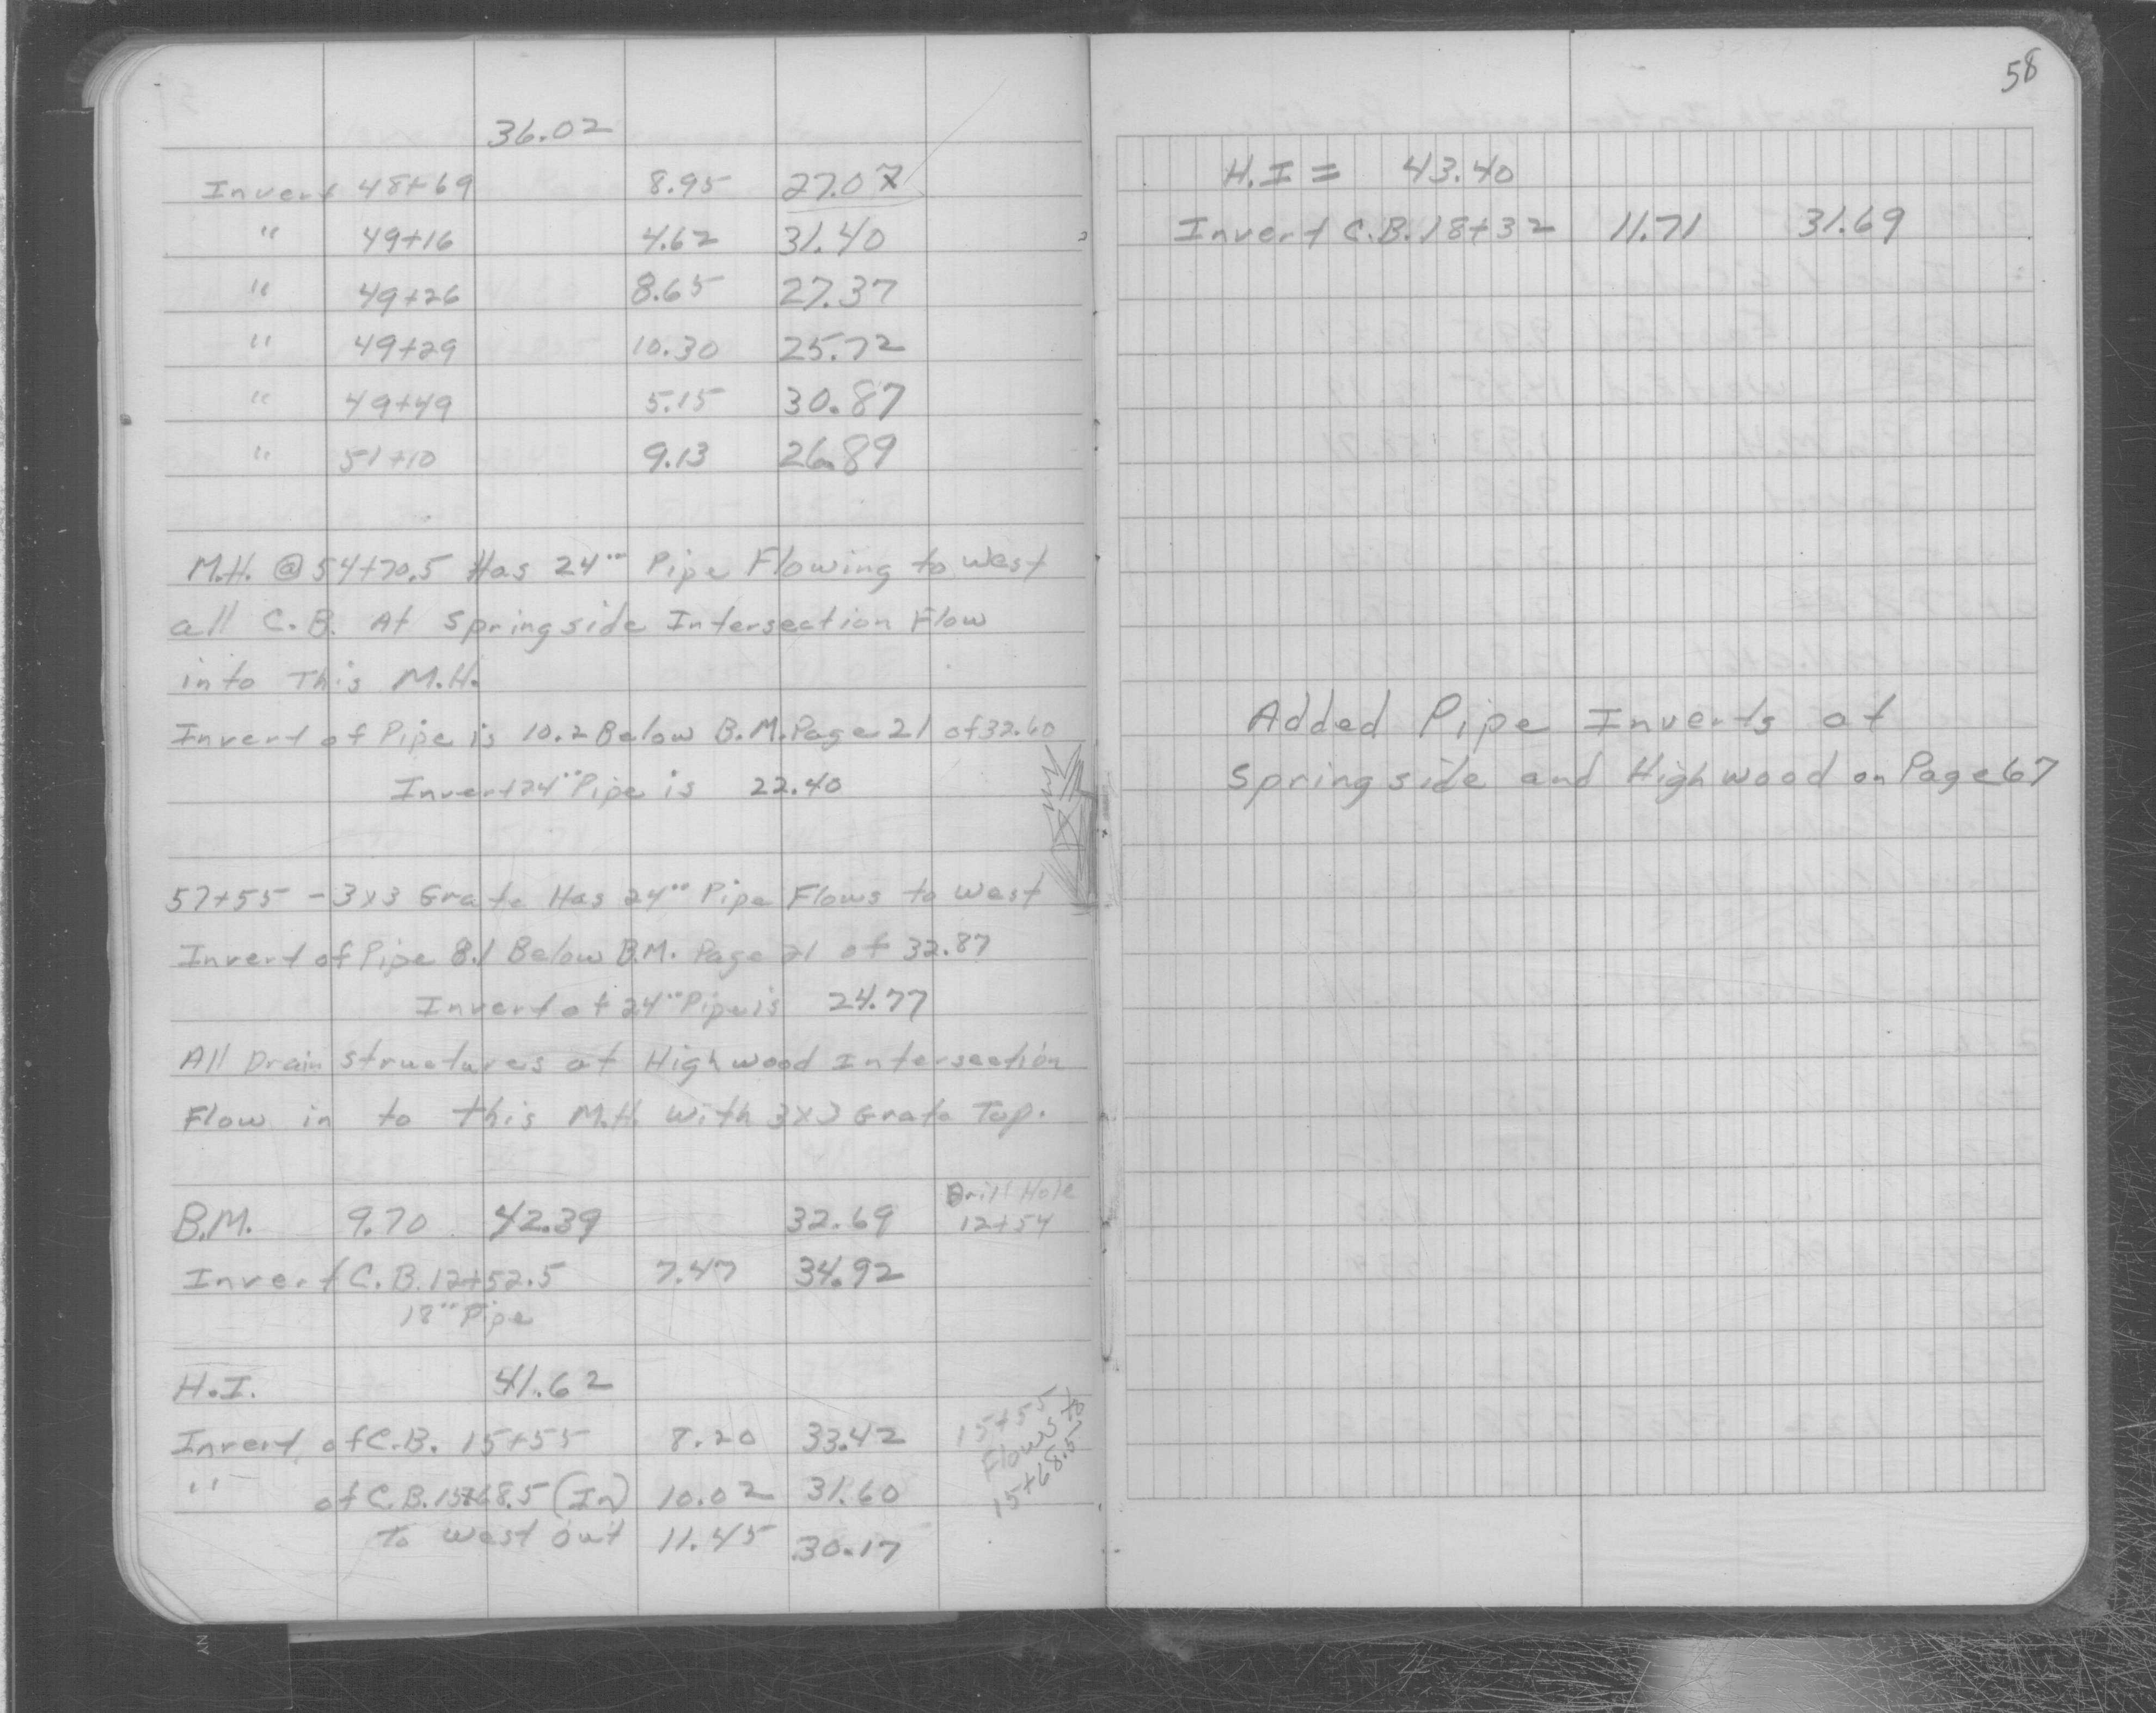 36.02
Invert 48+69 8.95 27.07
" 49+16 4.62 31.40
" 49+26 8.65 27.37
" 49+29 10.30 25.72
" 49+49 5.15 30.87
" 51+10 9.13 26.89
M.H. @ 54+70.5 Has 24" Pipe Flowing to West
all C.B. At Springside Intersection Flow
into This M.H.
Invert of Pipe is 10.2 Below B.M. Page 21 of 32.60
Invert 24" Pipe is 22.40
57+55 - 3x3 Grate Has 24" Pipe Flows to West
Invert of Pipe 8.1 Below B.M. Page 21 of 32.87
Invert of 24" Pipe is 24.77
All Drain Structures at Highwood Intersection
Flow in to this M.H. with 3x3 Grate Top.
B.M. 9.70 42.39 32.69 Drill Hole
12+54
Invert C.B. 12+52.5 7.47 34.92
18" Pipe
H.I. 41.62
Invert of C.B. 15+55 8.20 33.42
" of C.B. 15+68.5 (In) 10.02 31.60
To West out 11.45 30.17
15+55
Flows to
15+68.5
58
H.I = 43.40
Invert C.B. 18+32 11.71 31.69
Added Pipe Inverts at
Springside and Highwood on Page 67
NY